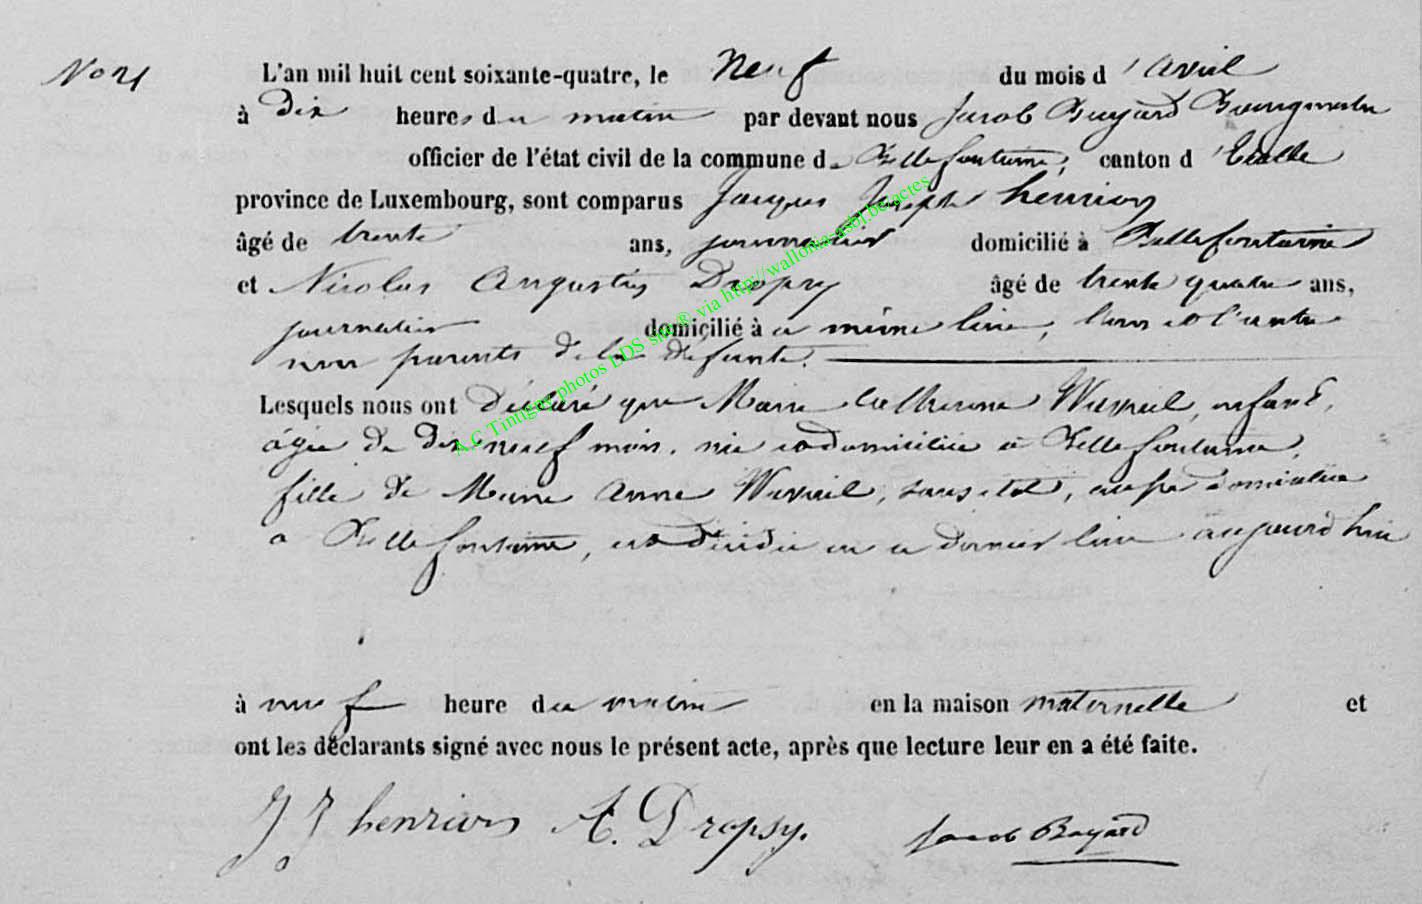 No 21
L'an mil huit cent soixante-quatre, le Neuf du mois d'avril
à Dix heures du matin par devant nous Jacob Bayard Bourgmestre
officier de l'état civil de la commune de Bellefontaine, canton d'Etalle
province de Luxembourg, sont comparus Jacques Joseph henrion
âgé de trente ans, journalier domicilié à Bellefontaine
et Nicolas Augustin Dropsy âgé de trente quatre ans,
journalier domicilié à ce même lieu, l'un et l'autre
non parents de la défunte.
Lesquels nous ont Déclaré que Marie Catherine enfant,
âgée de Dix neuf mois, née et domiciliée à Bellefontaine,
fille de Marie Anne sans état, domiciliée
à Bellefontaine, est décédée en ce dernier lieu aujourd'hui
à neuf heure du matin en la maison maternelle et
ont les déclarants signé avec nous le présent acte, après que lecture leur en a été faite.
J J henrion A. Dropsy. Jacob Bayard
A.C Tintigny photos LDS site® via http://wallonia-asbl.be/actes